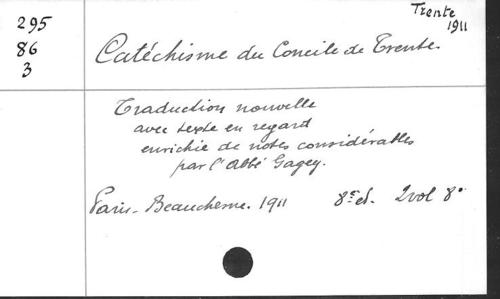 295
86
3
Trente
1911
Catéchisme du Concile de Trente.
Traduction nouvelle
avec texte en regard
enrichie de notes considérables
par l'abbé Gagey.
Paris - Beauchesne. 1911 8e éd. 2 vol 8°